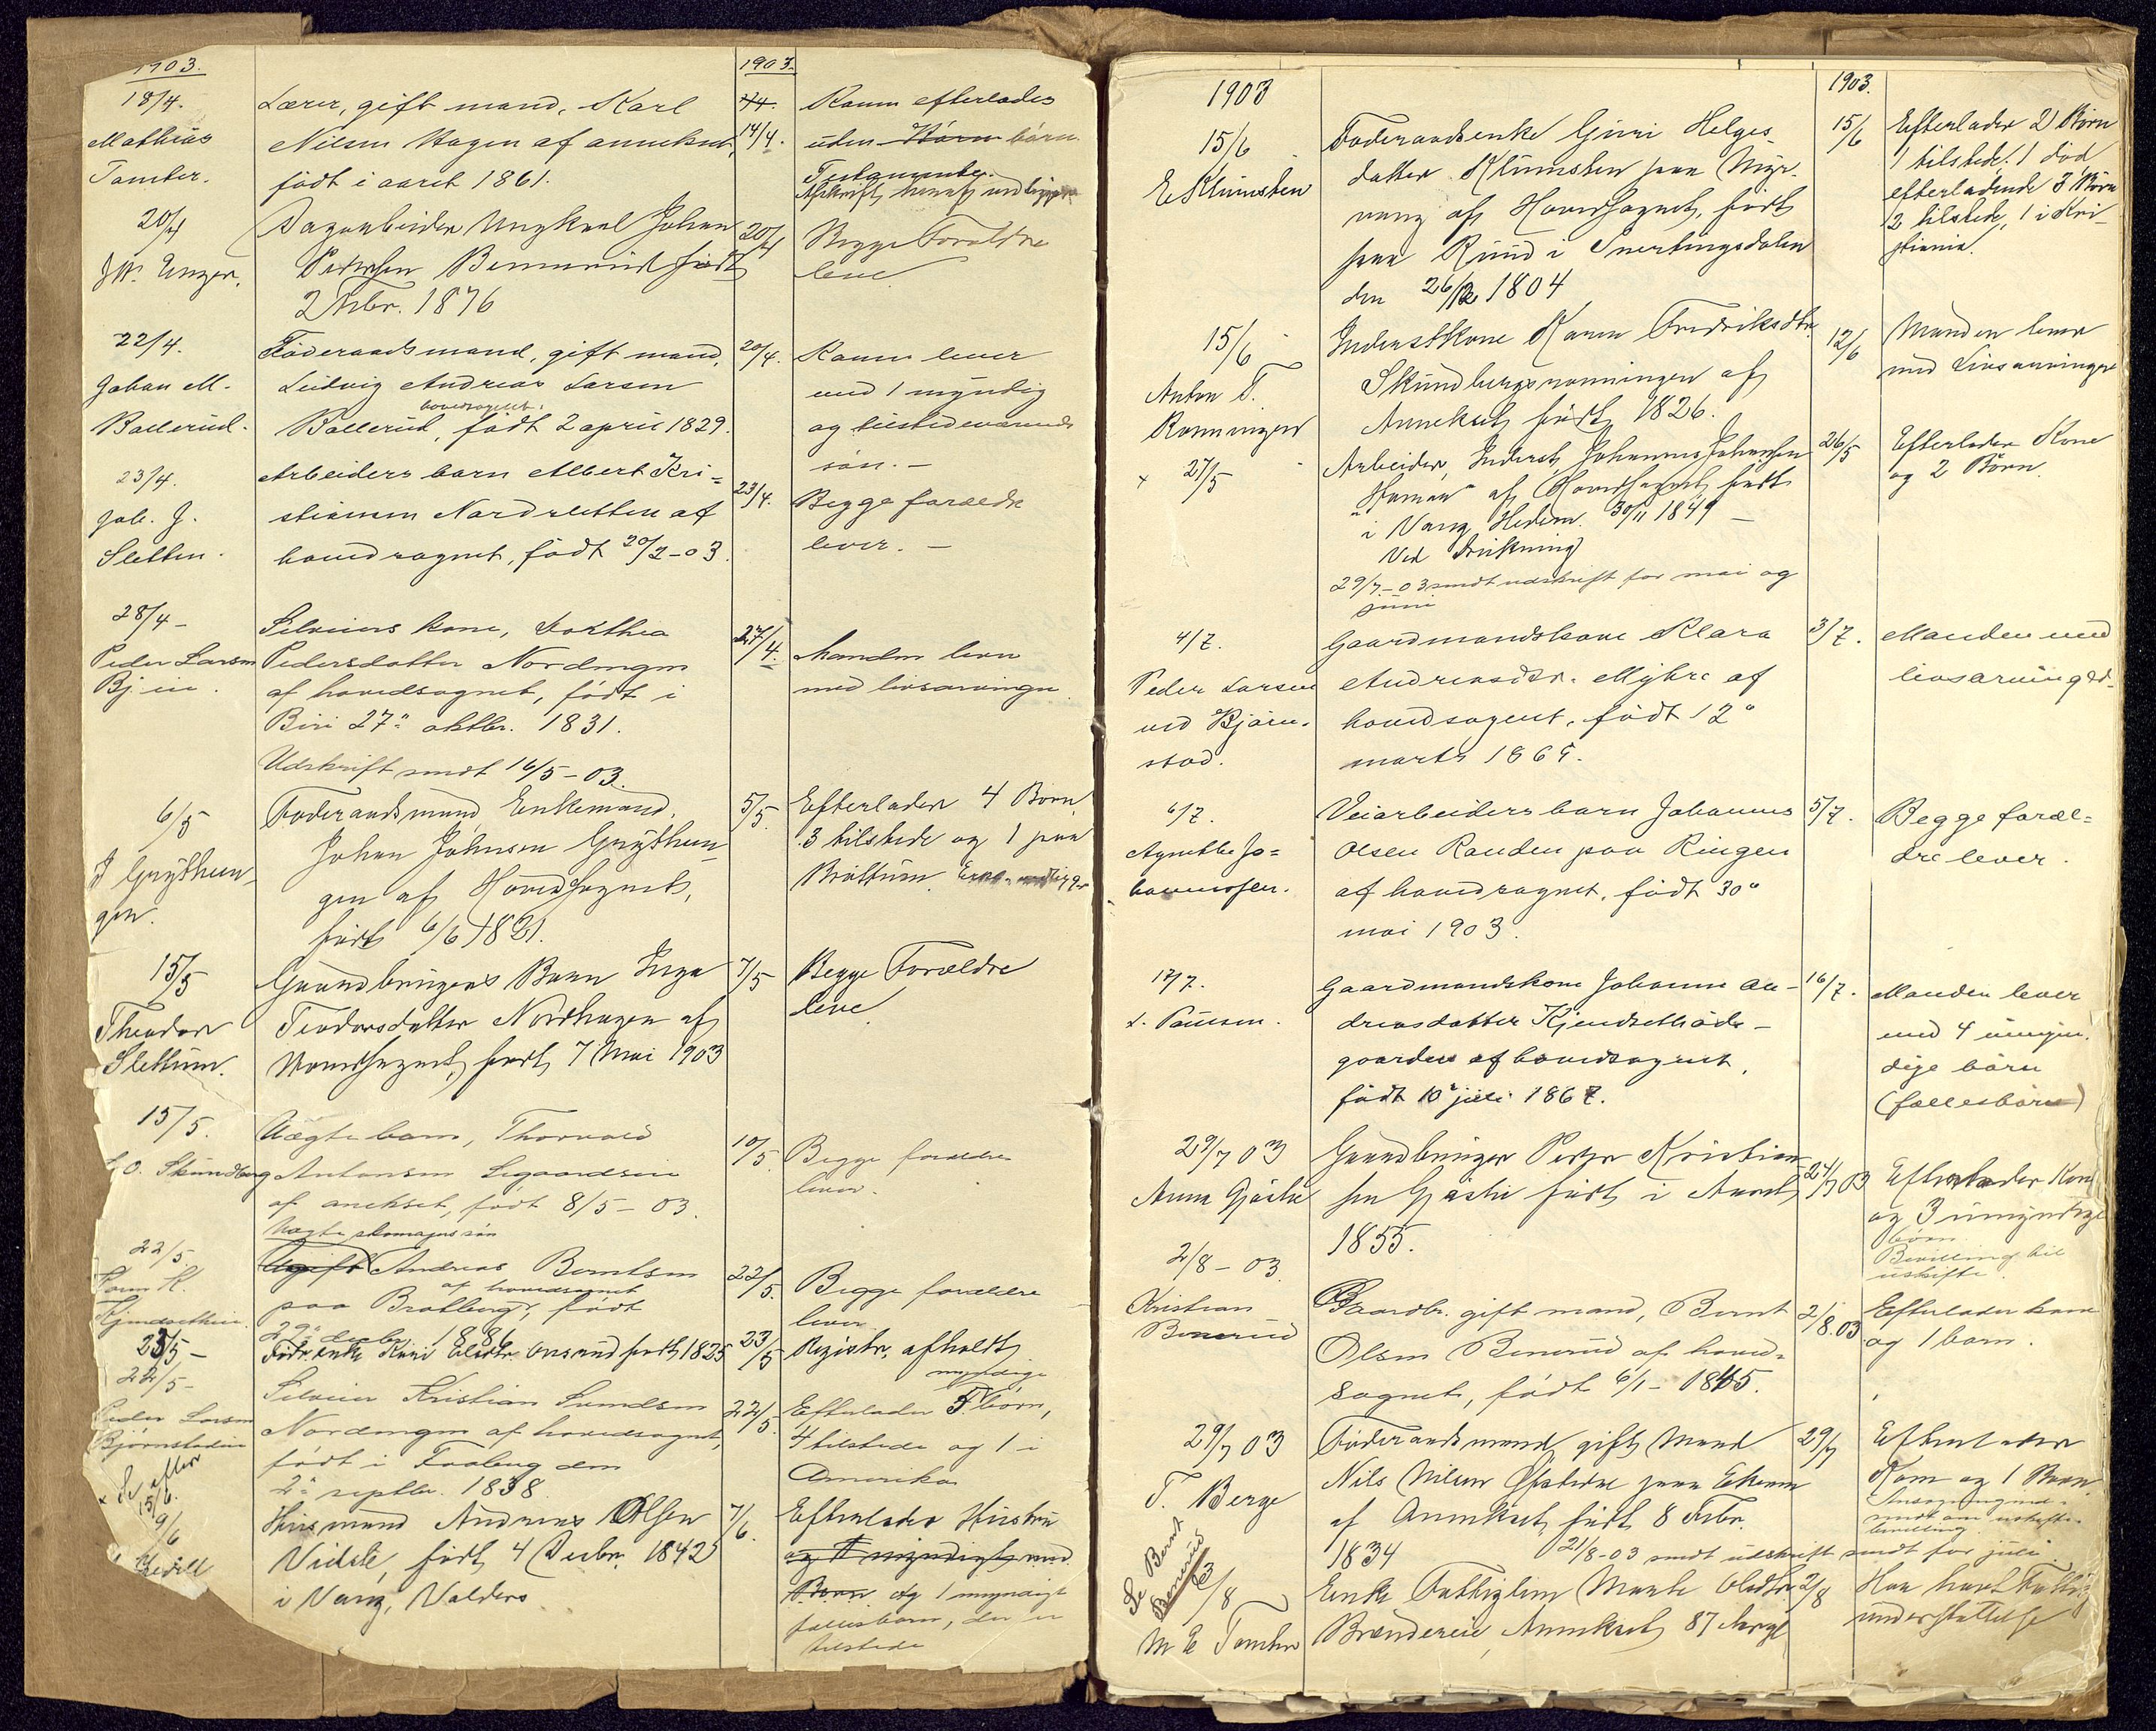 1903.
1903.
18/4.
Mathias
Tomter.
Lærer, gift mand, Karl
Nilsen Hagen af annekset,
født i aaret 1861.
14/4.
Konen efterlades
uden børn
Testamente.
20/4
Dagarbeider Ungkarl Johan
Pedersen født
2 Febr. 1876
20/4
Begge Forældre
leve
22/4.
Johan M.
Ballerud.
Føderaadsmand, gift mand,
Ludvig Andreas Larsen
hovedsognet.
Ballerud, født 2 april 1829.
20/4.
Konen lever
med 1 myndig
og tilstedeværende
søn. –
23/4.
Joh. J.
Sletten.
Arbeiders barn Albert Kri=
stiansen Nordsletten af
hovedsognet, født 20/2-03.
23/4.
Begge forældre
lever. –
28/4 –
Peder Larsen
Selveiers kone, Dorthea
Pedersdatter Nordengen
af hovedsognet, født i
Biri 27de oktbr. 1831.
Udskrift sendt 16/5-03.
27/4.
Manden lever
med livsarvinger
6/5
Føderaadsmand Enkemand.
Johan Johnsen
gen af Hovedsognet,
født 6/6 1821.
5/5.
Efterlader 4 Børn
3 tilstede og 1 paa
15/5
Theodor
Slettum.
Gaardbrugers Barn Inga
Teodorsdatter Nordhagen af
Hovedsognet, født 7 Mai 1903
7/5
Begge Forældre
leve
15/5.
O. Skundberg
Uægte barn, Thorvald
Antonsen
af anekset, født 8/5-03.
10/5.
Begge forældre
lever.
22/5.
Karen K.
Uægte skomagers søn
Andreas Berntsen
af hovedsognet
paa Bratberg, født
29de decbr. 1886
22/5.
Begge forældre
lever.
23/5 –
Føder. enke Kari Olsdtr. født 1825
23/5
Registr. afholdt
22/5 –
Peder Larsen
Bjørnstadeie
Selveier Kristian Svendsen
Nordengen af hovedsognet,
født i Faaberg den
2de septbr. 1838.
22/5.
myndige
Efterlader 5 børn,
4 tilstede og 1 i
Amerika
Se efter
15/6.
9/6
Husmand Andreas Olsen
Vidste, født 4 Decbr. 1842
i Vang, Valders
7/6.
Efterlader Hustru
og myndigt med
Børn og 1 myndigt
fællesbarn, der er
tilstede
1903
1903.
15/6
E Klundsten
Føderaadsenke Guri Helges
datter Klundsten paa
af Hovedsognet, født
paa Rud i Snertingsdalen
den 26/12 1804
15/6
Efterlader 2 Børn
1 tilstede. 1 død
efterladende 3 Børn
2 tilstede, 1 i Kri-
stiania.
15/6
Anton T.
Rønningen
Inderstkone Karen Fredriksdtr.
Skundbergsrønningen af
Annekset, født 1826.
12/6
Manden lever
med Livsarvinger
x 27/5
Arbeider, Inderst, Johannes Johansen
af Hovedsognet, født
i Vang Hedem. 30/11 1849 –
Ved Drukning
26/5
Efterlader Kone
og 2 Børn.
29/7-03 sendt udskrift for mai og
juni
4/7.
Peder Larsen
ved Bjørn-
stad.
Gaardmandskone Klara
Andreasdtr. Myhre af
hovedsognet, født 12te
marts 1865.
3/7.
Manden med
livsarvinger.
6/7.
Agnethe Jo=
hannessen.
Veiarbeiders barn Johannes
Olsen Randen paa Ringen
af hovedsognet, født 30te
mai 1903.
5/7.
Begge foræl=
dre lever.
17/7.
L. Paulsen.
Gaardmandskone Johanne An-
dreasdatter
gaarden af hovedsognet,
født 10de juli 1867.
16/7.
Manden lever
med 4 umyn.
dige børn
(fællesbørn)
29/7 03
Anna Gjøslie
Gaardbruger Peder Kristian
sen Gjøslie født i Aaret
1855.
24/7 03
Efterlader Kone
og 3 umyndige
børn
Bevilling til
uskifte.
2/8 – 03.
Kristian
Benerud
Gaardbr. gift mand, Bernt
Olsen Benerud af hoved-
sognet, født 6/1 – 1845.
2/8.03
Efterlader kone
og 1 barn.
29/7 03
T. Berge
Føderaadsmand, gift Mand
Nils Nilsen paa
af Annekset, født 8 Febr.
1834
29/7
Efterlader
Kone og 1 Barn.
sendt om uskifte-
bevilling.
2/8-03 sendt udskrift sendt for juli.
Se Bernt
Benerud
3/8
M E Tomter
Enke Fattiglem Marthe Olsdtr.
Brændereie, Annekset, 87 Aar gl
2/8
Har havt Fattig
understøttelse